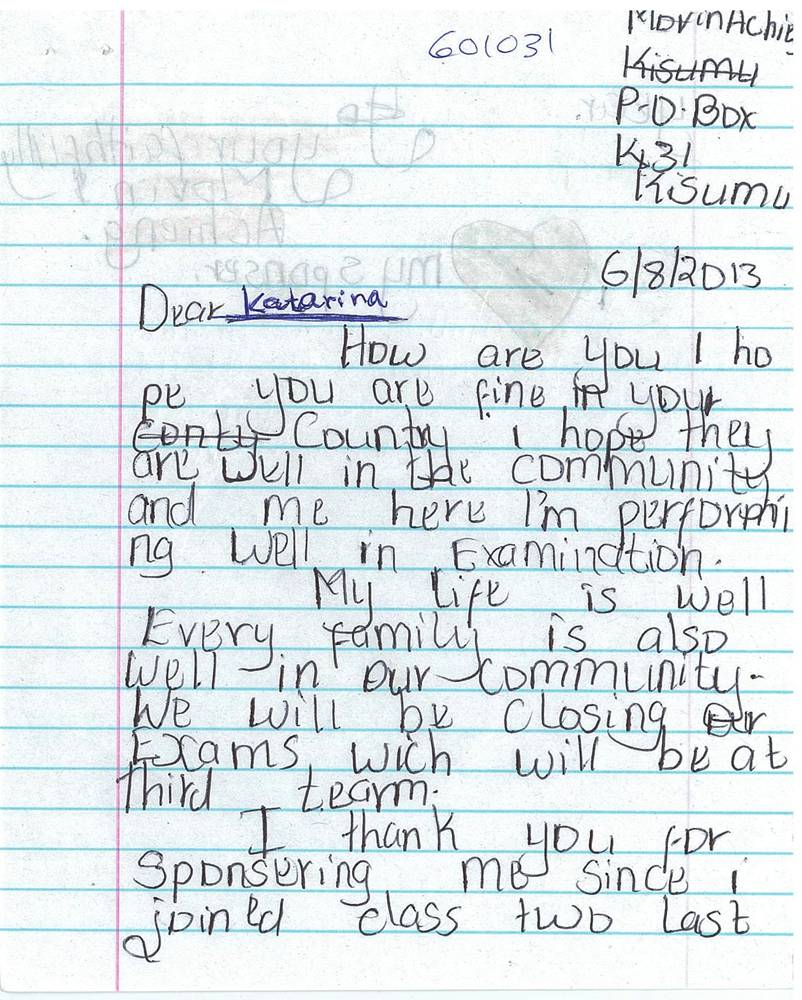 601031
MovinAchie
Kisumu
P.O.Box
K31
Kisumu
6/8/2013
Dear Katarina
How are you I ho
pe you are fine in your
Conty Country i hope they
are well in the community
and me here I'm perforphi
ng well in Examination.
My Life is well
Every family is also
well in our community.
We will be closing our
Exams wich will be at
third tearm.
I thank you for
Sponsering me since i
joined class two last
your faithfully
Movin
Achieng.
my sponser.